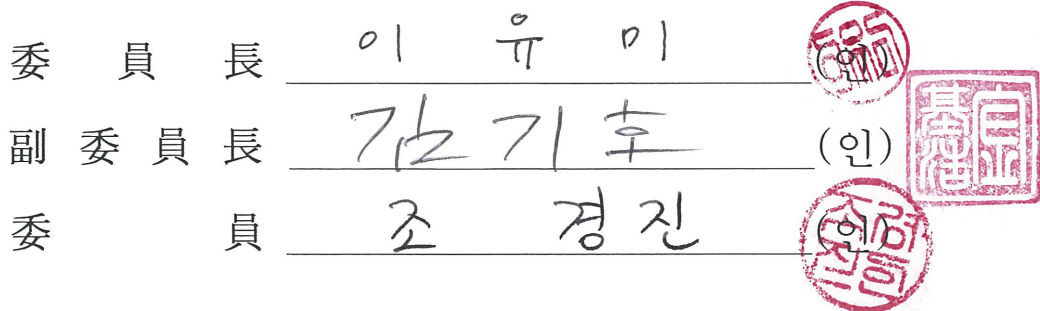 委員長 이유미 (인)
副委員長 김기호 (인)
委員 조경진 (인)